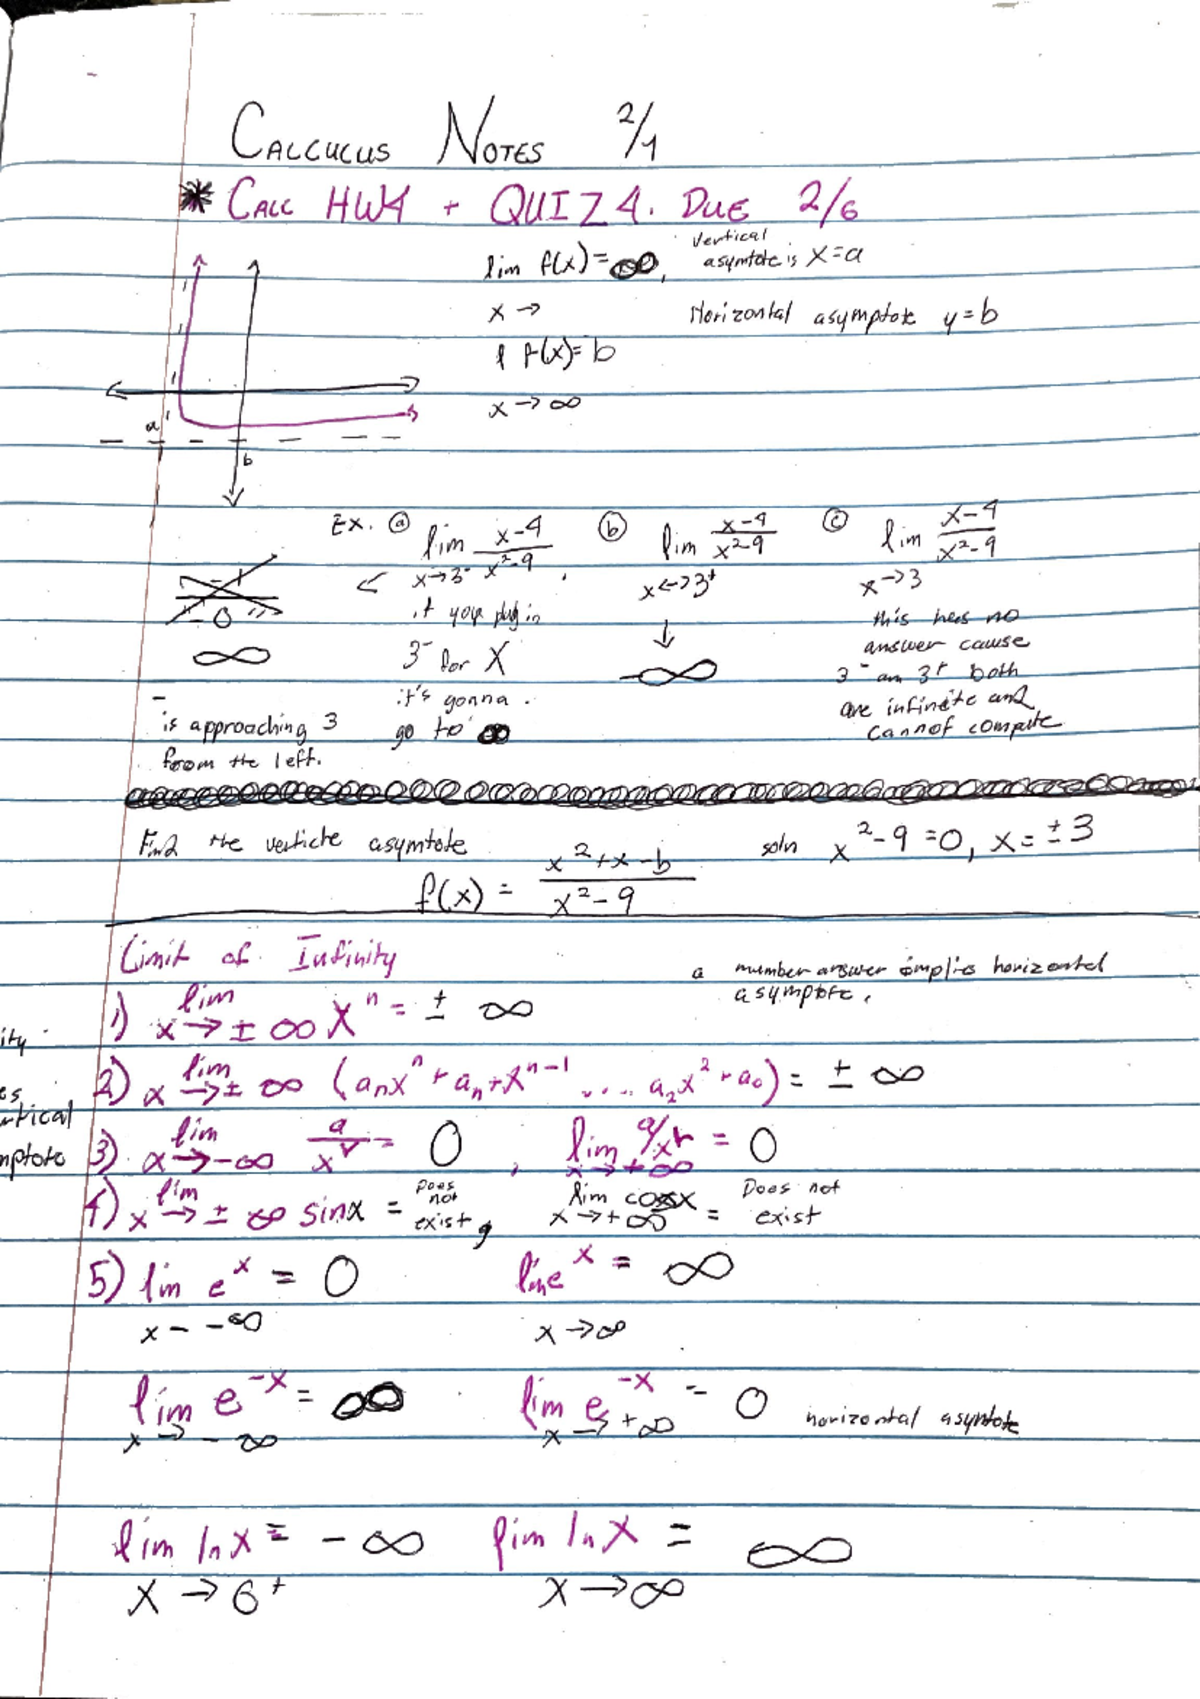 CALCUCUS NOTES 2/1
* CALC HW4 + QUIZ 4. DUE 2/6
lim f(x)=∞, vertical asymtote is x=a
x→
Horizontal asymptote y=b
l f(x)=b
x→∞
a
b
Ex. ⓐ lim x-4/x²-9 ⓑ lim x-4/x²-9 ⓒ lim x-4/x²-9
< x→3⁻ x↔3⁺ x→3
- +
- 0
if your plug in
3⁻ for X
it's gonna.
go to ∞
∞
-
is approaching 3
from the left.
↓
-∞
this has no
answer cause
3⁻ an 3⁺ both
are infinite and
cannot compute
Find the verticle asymtote
f(x) = x²+x-b/x²-9
soln x²-9=0, x=±3
Limit of Infinity
a number answer implies horizontal
asymptote.
1) lim x→±∞ xⁿ = ± ∞
2) lim x→±∞ (aₙxⁿ+aₙ+xⁿ⁻¹ ..... a₂x²+a₀) = ± ∞
3) lim x→-∞ a/xʳ = 0, lim x→+∞ a/xʳ = 0
4) lim x→±∞ sinx = Does not exist, lim x→+∞ cosx = Does not exist
5) lim eˣ = 0 lim eˣ = ∞
x--∞ x→∞
lim e⁻ˣ = ∞ lim e⁻ˣ = 0 horizontal asymtote
x→-∞ x→+∞
lim lnx = -∞ lim lnx = ∞
x→6⁺ x→∞
ity
es
rtical
mptote